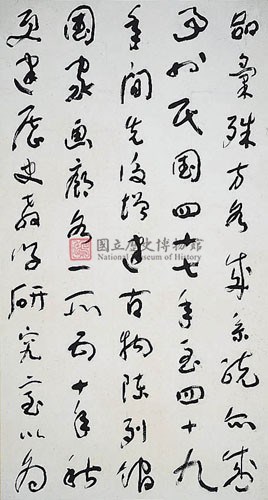 品彙殊方各成系統
於民國四十七年至四十九
年間先後增建古物陳列館
國家画廊各一所五十年秋
更建歷史教學研究室以為
國立歷史博物館
National Museum of History